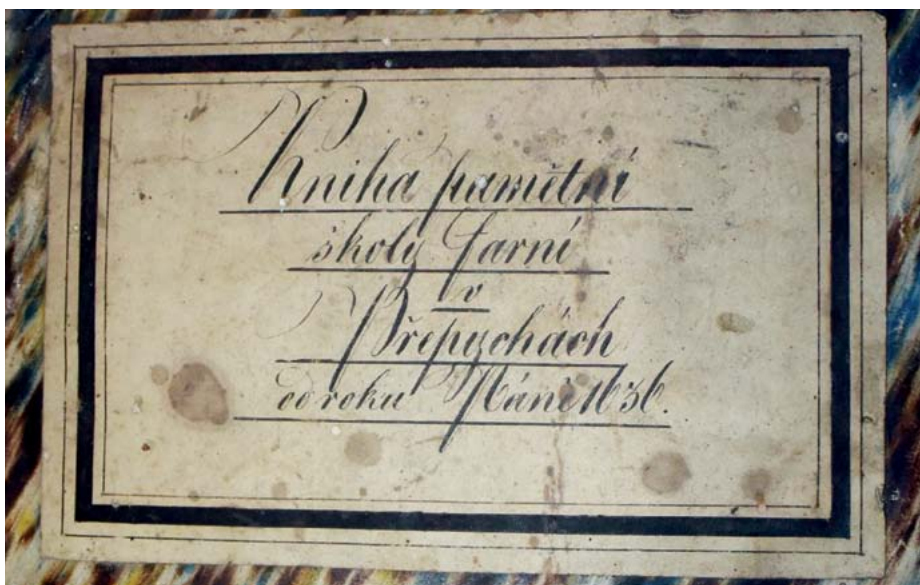 Kniha pamětní
školy farní
v
Přepychách
od roku Páně 1636.